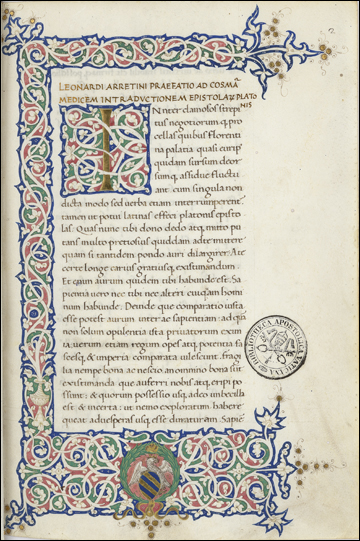 LEONARDI ARRETINI PRAEFATIO AD COSMĀ
MEDICEM IN TRADVCTIONEM EPISTOLAꝜ PLATO
NIS
INnter clamosos strepi
tus negotiorum q, pro
cellas quibus florenti
na palatia quasi eurip'
quidam sursum deor
sum q, assidue fluctu
ant: cum singula non
dicta modo sed uerba etiam interrumperent
tamen ut potui latinas effeci platonis episto
las. Quas nunc tibi dono dedo atq, multo pu
tans multo pretiosius quiddam adte mittere
quam si tantidem pondo auri dilargirer. At
certe longe carius gratiusq, existimandum.
Et enim aurum quidem tibi habunde est. Sa
pientia uero nec tibi nec alteri cuiqam homi
num habunde. Deinde que comparatio iusta
esse potest aurum inter ac sapientiam: ad qā
non solum opulentia ista priuatorum exim
ia uerum etiam regum opes atq, potentia sa
ceesq, & imperia comparata uilescunt. fragi
lia nempe bona ac nescio an omnino bona sint
existimanda que auferri nobis atq, eripi po
ssunt: & quorum possessio usq, adeo imbecilla
est & incerta: ut nemo exploratum habere
queat aduesperas usq, esse duraturam. Sapie
BIBLIOTHECA APOSTOLICA VATICANA